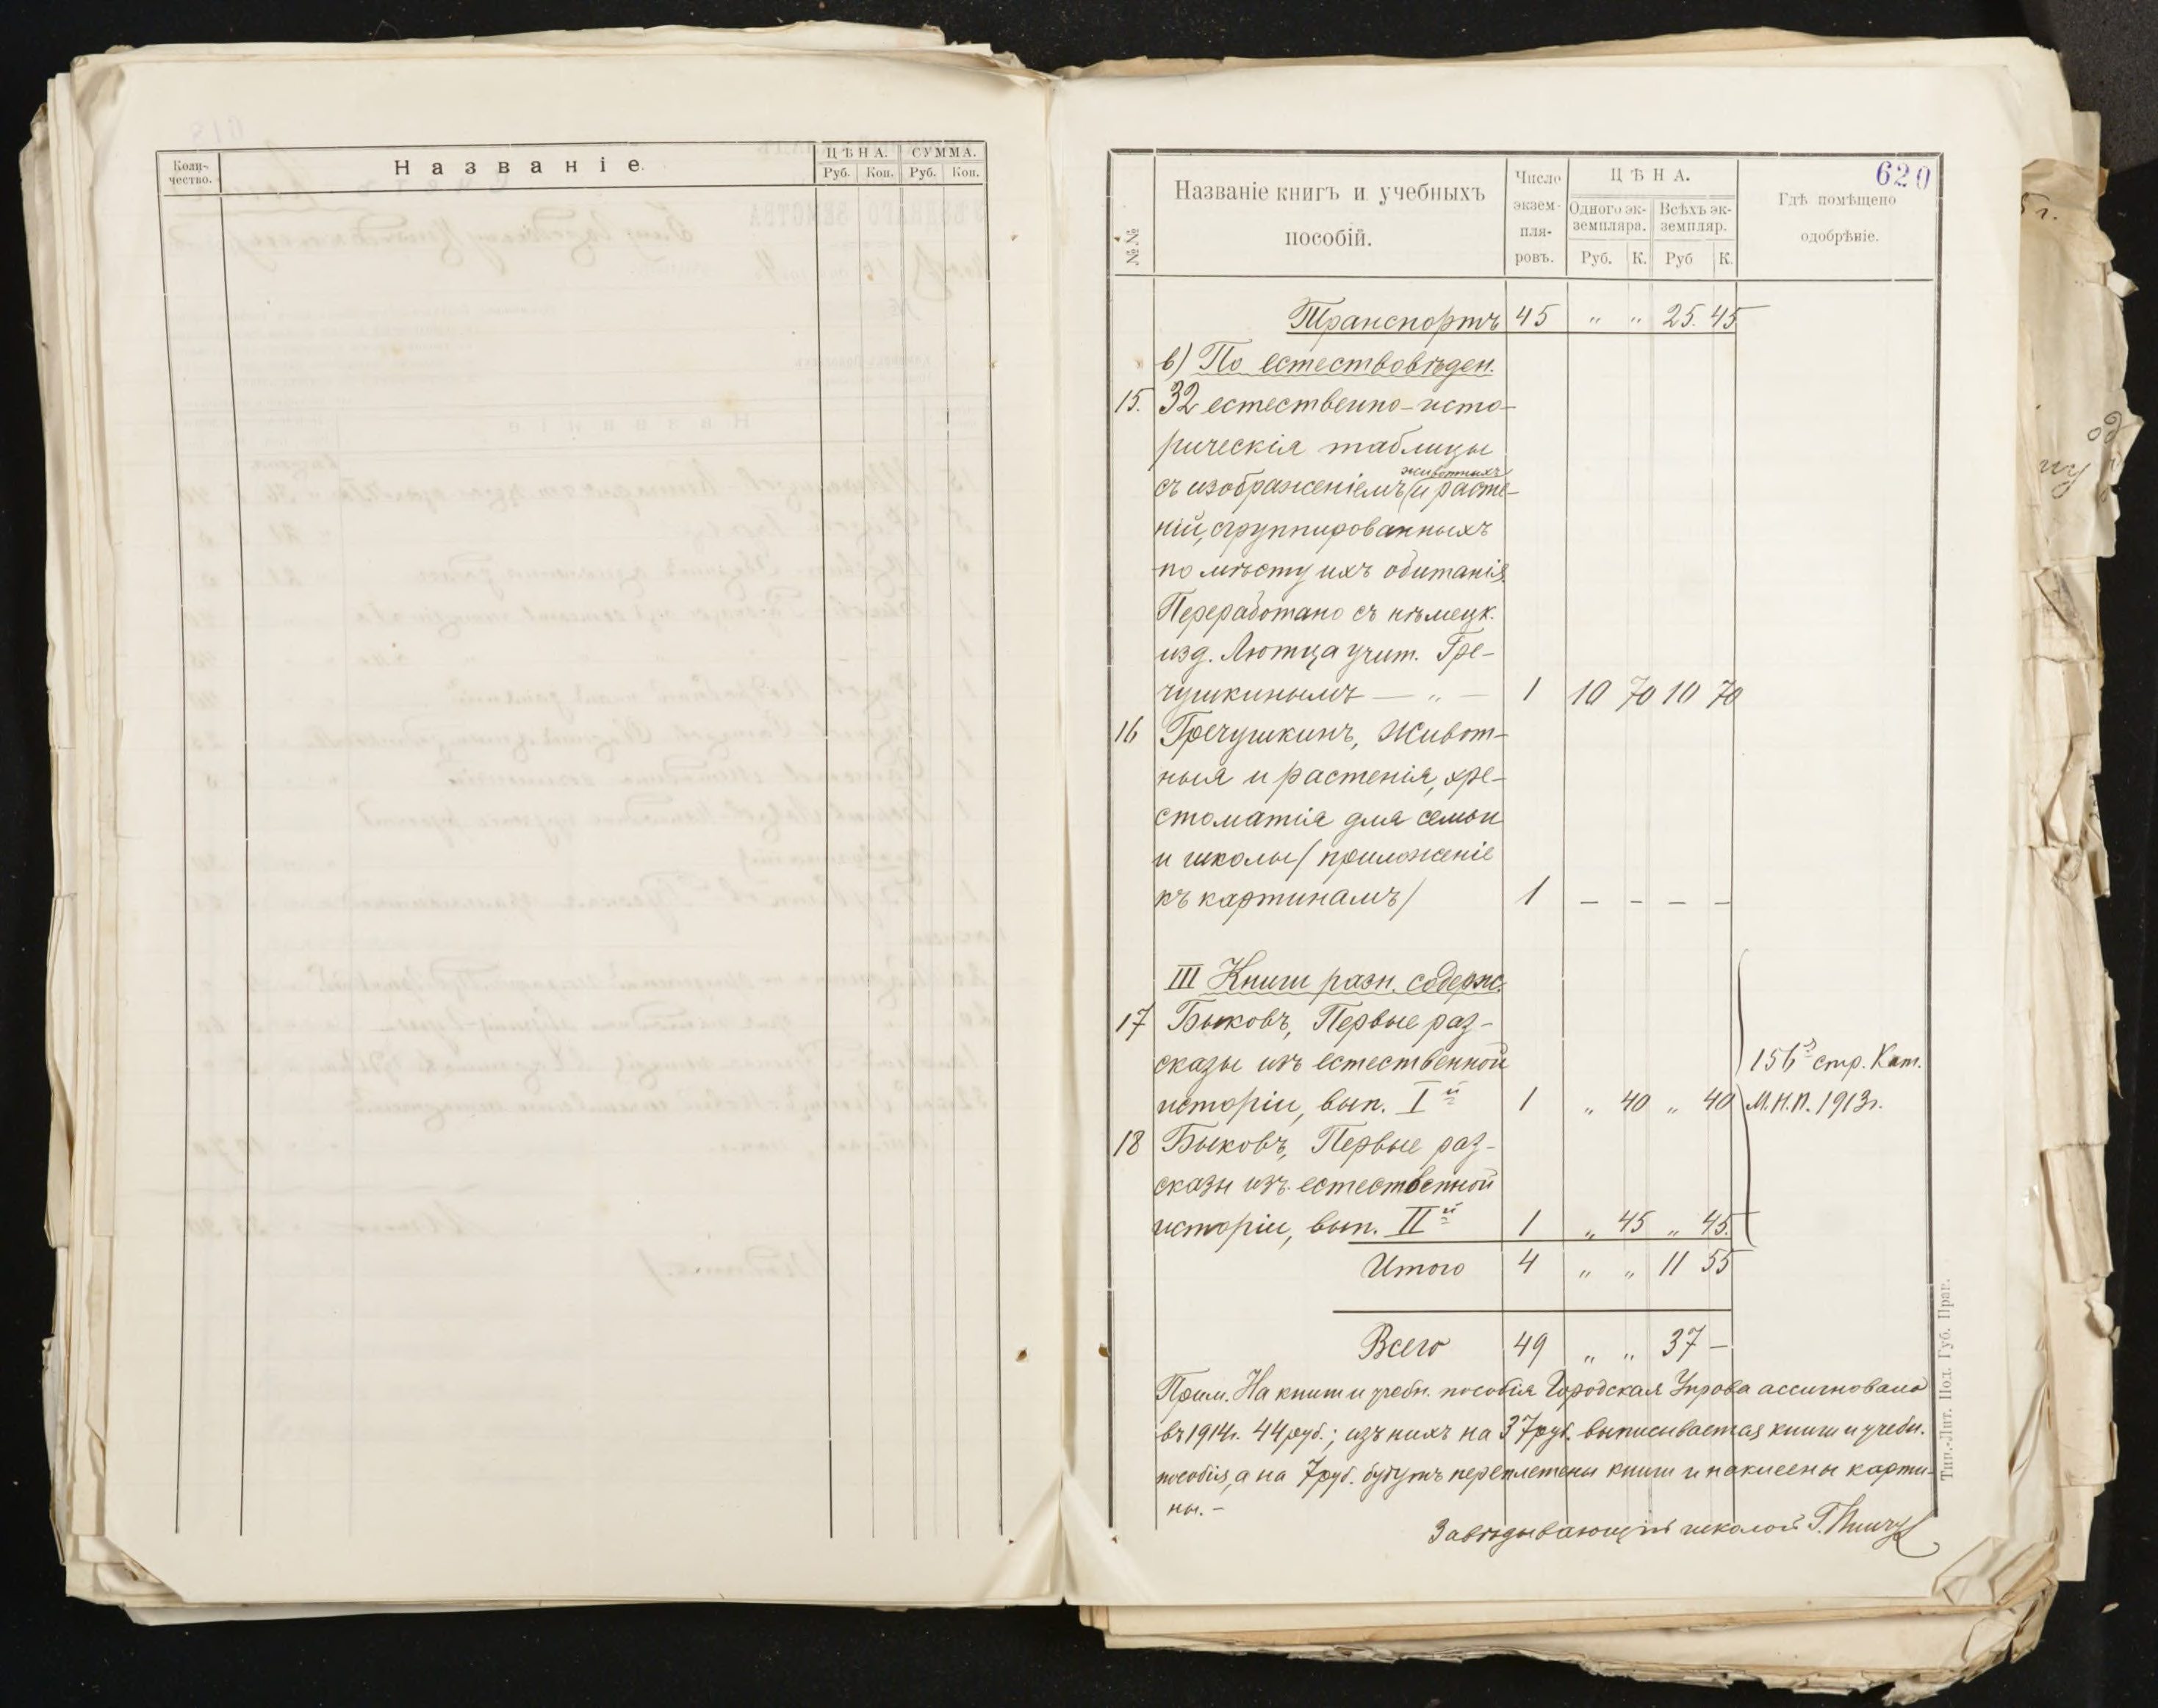 Коли-
чество.
Названіе
ЦѢНА. СУММА.
Руб. Коп. Руб. Коп.
620
№№
Названіе книгъ и учебныхъ
пособій.
Число
экзем-
пля-
ровъ.
ЦѢНА.
Одного эк-
земпляра.
Всѣхъ эк-
земпляр.
Руб. К. Руб К.
Гдѣ помѣщено
одобрѣніе.
Транспортъ 45 " " 25. 45
в) По естествовѣден.
15. 32 естественно-исто-
рическія таблицы
животныхъ
съ изображеніемъ (и расте-
ній, сгруппированныхъ
по мѣсту ихъ обитанія.
Переработано съ нѣмецк.
изд. Лютца учит. Гре-
чушкинымъ — " — 1 10 70 10 70
16 Гречушкинъ, Живот-
ныя и растенія, хре-
стоматія для семьи
и школы / приложеніе
къ картинамъ / 1 – – – –
III Книги разн. содерж.
17 Быковъ, Первые раз-
сказы изъ естественной
исторіи, вып. I й 1 " 40 " 40
156 стр. Кат.
М.Н.П. 1913г.
18 Быковъ, Первые раз-
сказы изъ естественной
исторіи, вып. II й 1 " 45 " 45.
Итого 4 " " 11 55
Всего 49 " " 37 –
Прим. На книги и учебн. пособія Городская Управа ассигновала
въ 1914г. 44 руб.; изъ нихъ на 37 руб. выписываетъ книги и учебн.
пособія, а на 7 руб. будутъ переплетены книги и наклеены карти-
ны. –
Завѣдывающій школой Г.
Тип.-Лит. Под. Губ. Прав.